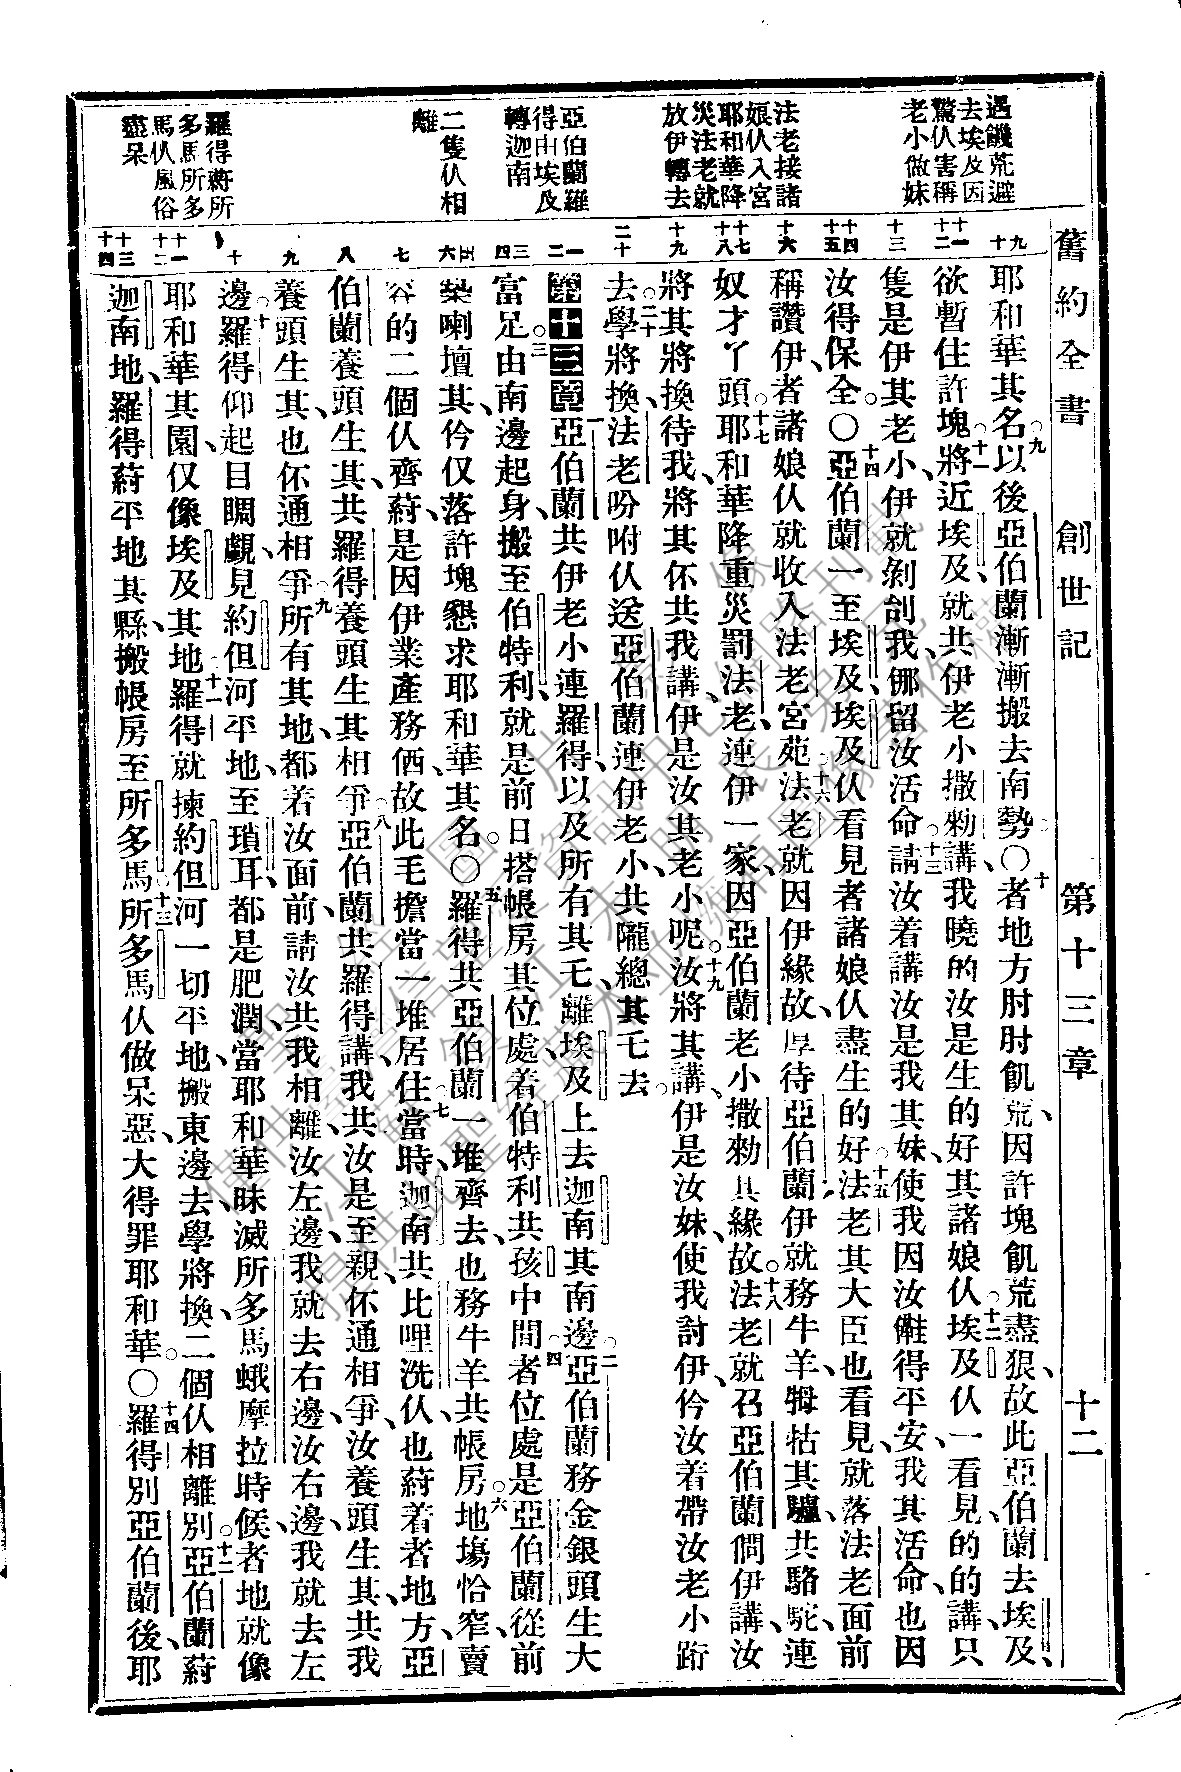 舊約全書 創世記 第十三章 十二
遇饑荒避
去埃及因
驚仈害稱
老小做妹
法老接諸
娘仈入宮
耶和華降
災法老就
放伊轉去
亞伯蘭羅
得由埃及
轉迦南
二隻仈相
離
羅得蒋所
多馬所多
馬仈風俗
盡呆
九 十
十一 十二
十三
十四 十五
十六
十七 十八
十九
二十
一 二
三 四
五 六
七
八
九
十
十一 十二
十三 十四
耶和華其名○九以後亞伯蘭漸漸搬去南勢○十者地方肘肘飢荒、因許塊飢荒盡狠、故此亞伯蘭去埃及、
欲暫住許塊○十一將近埃及、就共伊老小撒勑講、我曉的汝是生的好其諸娘仈○十二埃及仈一看見的的講、只
隻是伊其老小、伊就剝刣我、挪留汝活命○十三請汝着講汝是我其妹、使我因汝㒰得平安、我其活命也因
汝得保全。○十四亞伯蘭一至埃及、埃及仈看見者諸娘仈盡生的好○十五法老其大臣也看見、就落法老面前
稱讚伊、者諸娘仈就收入法老宮苑○十六法老就因伊緣故、厚待亞伯蘭、伊就務牛羊牳牯其驢、共駱駝、連
奴才丫頭○十七耶和華降重災罰法老連伊一家、因亞伯蘭老小撒勑其緣故○十八法老就召亞伯蘭、倜伊講、汝
將其將換待我、將其伓共我講、伊是汝其老小呢○十九汝將其講、伊是汝妹、使我討伊、伶汝着帶汝老小跡
去○二十學將換、法老吩咐仈送亞伯蘭連伊老小、共隴總其乇去。
第十三章 一亞伯蘭共伊老小連羅得、以及所有其乇、離埃及、上去迦南其南邊○二亞伯蘭務金銀頭生大
富足○三由南邊起身、搬至伯特利、就是前日搭帳房其位處、着伯特利共孩中間○四者位處是亞伯蘭從前
築喇壇其、伶仅落許塊懇求耶和華其名○五羅得共亞伯蘭一堆齊去、也務牛羊共帳房○六地塲恰窄、賣
容的二個仈齊蒋、是因伊業產務㑚、故此毛擔當一堆居住○七當時迦南共比哩洗仈、也蒋着者地方、亞
伯蘭養頭生其、共羅得養頭生其相爭○八亞伯蘭共羅得講、我共汝是至親、伓通相爭、汝養頭生其、共我
養頭生其、也伓通相爭○九所有其地、都着汝面前、請汝共我相離、汝左邊、我就去右邊、汝右邊、我就去左
邊○十羅得仰起目睭、覷見約但河平地、至瑣耳、都是肥潤、當耶和華昧滅所多馬蛾摩拉時候、者地就像
耶和華其園、仅像埃及其地○十一羅得就揀約但河一切平地、搬東邊去、學將換二個仈相離別○十二亞伯蘭蒋
迦南地、羅得蒋平地其縣、搬帳房至所多馬○十三所多馬仈做呆惡、大得罪耶和華。○十四羅得別亞伯蘭後、耶